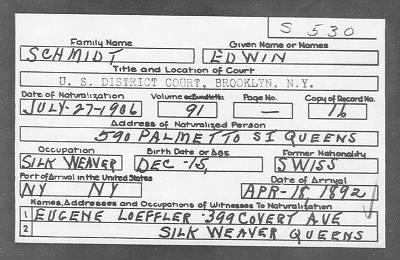 S 530
Family Name Given Name or Names
SCHMIDT EDWIN
Title and Location of Court
U. S. DISTRICT COURT, BROOKLYN, N.Y.
Date of Naturalization Volume or Bundle No. Page No. Copy of Record No.
JULY-27-1906 91 — 16
Address of Naturalized Person
590 PALMETTO ST QUEENS
Occupation Birth Date or Age Former Nationality
SILK WEAVER DEC-15, SWISS
Port of Arrival in the United States Date of Arrival
NY NY APR-18, 1892
Names, Addresses and Occupations of Witnesses To Naturalization
1 EUGENE LOEFFLER - 399 COVERT AVE
2 SILK WEAVER QUEENS